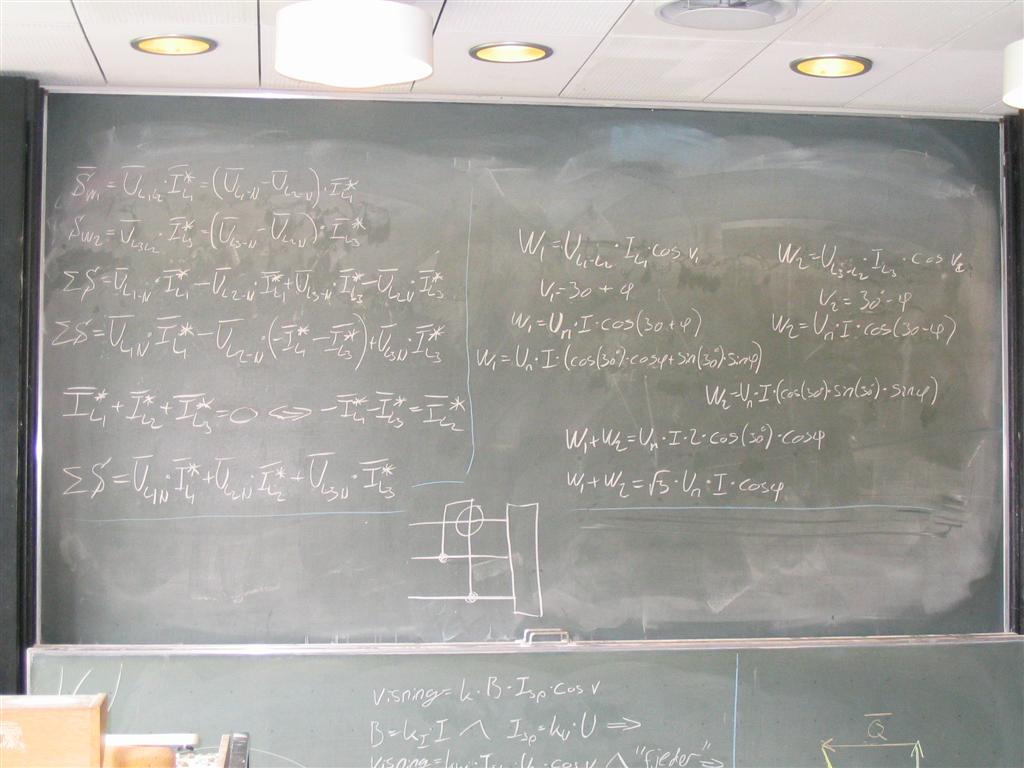 S̅_W1 = U̅_L1L2 · I̅_L1* = (U̅_L1-N - U̅_L2-N) · I̅_L1*
S̅_W2 = U̅_L3L2 · I̅_L3* = (U̅_L3-N - U̅_L2-N) · I̅_L3*
ΣS̅ = U̅_L1-N · I̅_L1* - U̅_L2-N · I̅_L1* + U̅_L3-N · I̅_L3* - U̅_L2N · I̅_L3*
ΣS̅ = U̅_L1N · I̅_L1* - U̅_L2-N · (-I̅_L1* - I̅_L3*) + U̅_L3N · I̅_L3*
I̅_L1* + I̅_L2* + I̅_L3* = 0 ⇔ -I̅_L1* - I̅_L3* = I̅_L2*
ΣS̅ = U̅_L1N · I̅_L1* + U̅_L2N · I̅_L2* + U̅_L3N · I̅_L3*
W1 = U_L1-L2 · I_L1 · cos v1
v1 = 30 + φ
W1 = Un · I · cos(30+φ)
W1 = Un · I · (cos(30°) · cosφ + sin(30°) · sinφ)
W2 = U_L3-L2 · I_L3 · cos v2
v2 = 30° - φ
W2 = Un · I · cos(30-φ)
W2 = Un · I · (cos(30) · sin(30°) · sinφ)
W1 + W2 = Un · I · 2 · cos(30°) · cosφ
W1 + W2 = √3 · Un · I · cosφ
visning = k · B · Isp · cos v
B = k_I I ∧ Isp = k_U · U ⇒
visning = · cos v ∧ "fjeder" ⇒
Q̅